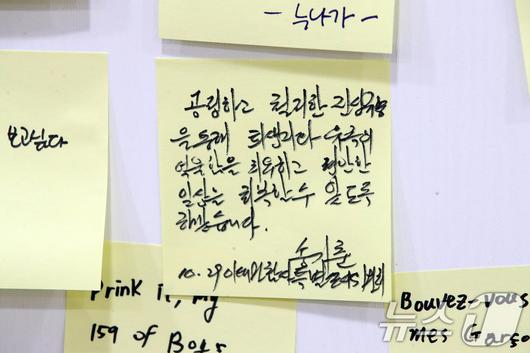 - 누나가 -
보고싶다
공정하고 철저한 진상규명
을 통해 희생자와 유족의
억울함을 회복하고 편안한
일상을 회복할 수 있도록
하겠습니다.
송기춘
10.29이태원참사특별조사위원회
Drink it, my
159 of Boys
Bouvez-vous
mes Garço
뉴스1